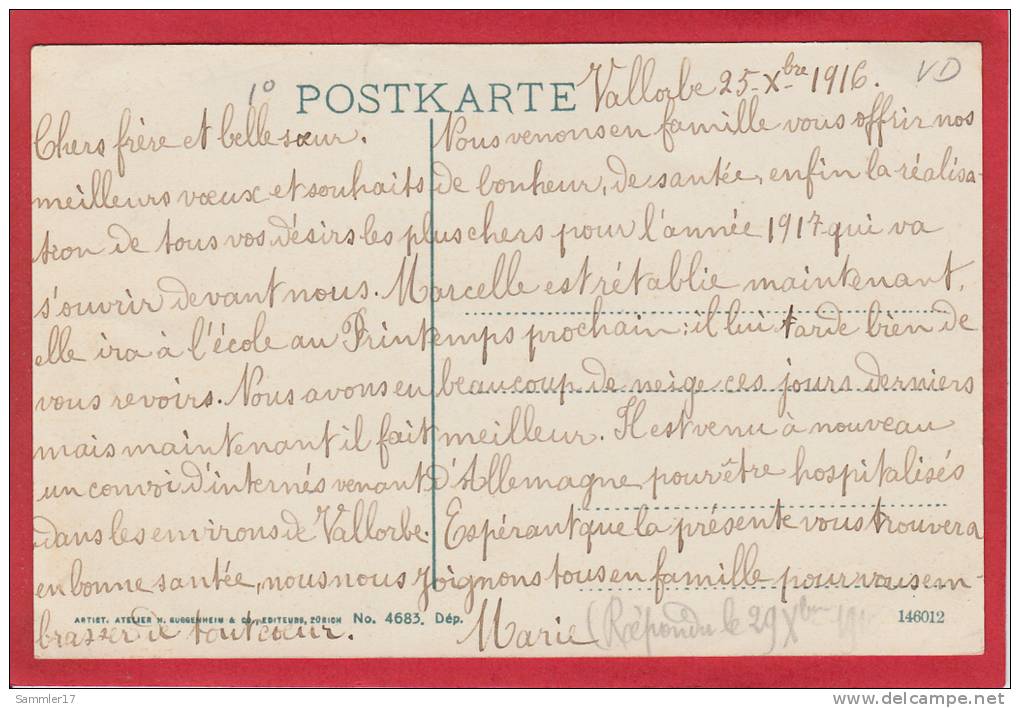 1° POSTKARTE Vallorbe 25-Xbre 1916. VD
Chers frère et belle sœur. Nous venons en famille vous offrir nos
meilleurs vœux et souhaits de bonheur, de santée, enfin la réalisa-
tion de tous vos désirs les plus chers pour l'année 1917 qui va
s'ouvrir devant nous. Marcelle est rétablie maintenant,
elle ira à l'école au Printemps prochain: il lui tarde bien de
vous revoirs. Nous avons eu beaucoup de neige ces jours derniers
mais maintenant il fait meilleur. Il est venu à nouveau
un convoi d'internés venant d'Allemagne pour être hospitalisés
dans les environs de Vallorbe. Espérant que la présente vous trouvera
en bonne santée, nous nous joignons tous en famille pour vous em-
brasser de tout cœur. Marie (Répondu le 29 Xbre
ARTIST. ATELIER H. GUGGENHEIM & CO., EDITEURS, ZÜRICH No. 4683. Dép. 146012
Sammler17
http://www.delcampe.net